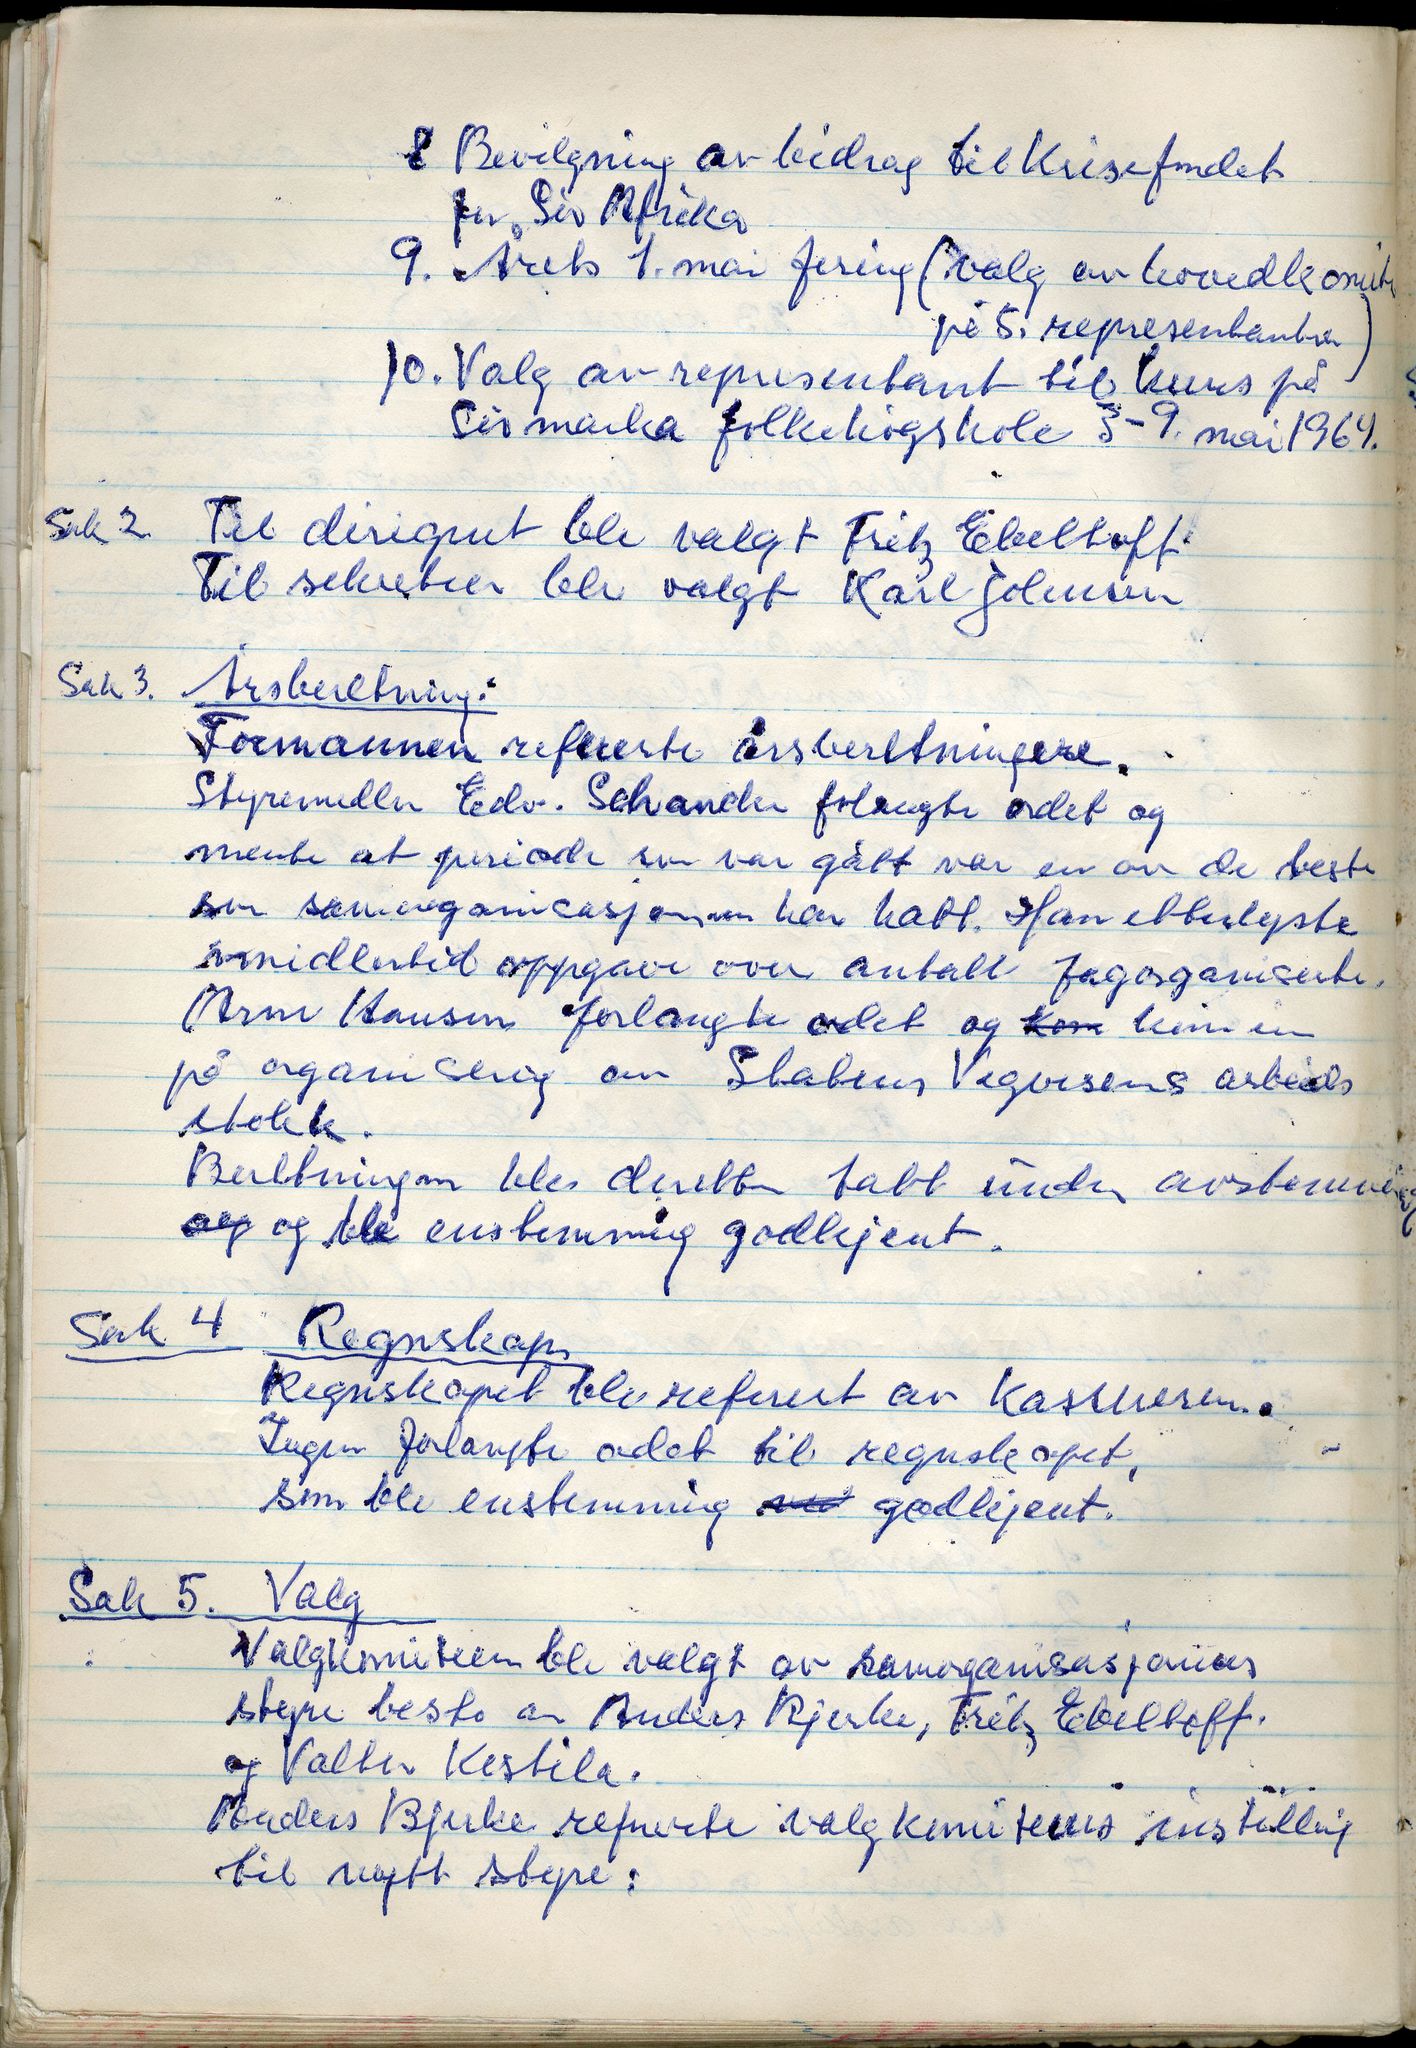 8 Bevilgning av bidrag til Krisefondet
for Sør Afrika
9. Årets 1. mai feiring (Valg av hovedkomite
på 5. representanter)
10. Valg av representant til kurs på
Sørmarka folkehøgskole 3-9. mai 1964.
Sak 2. Til dirigent ble valgt Fritz Ebeltoft.
Til sekretær ble valgt Karl Johnsen
Sak 3. Årsberetning:
Formannen refererte årsberetningere.
Styremedlem Edv. Schander forlangte ordet og
mente at periode som var gått var en av de beste
som samorganisasjonen har hatt. Han etterlyste
imidlertid oppgave over antall fagorganiserte.
Arne Hansen forlangte ordet og kom kom inn
på organisering av Statens Vegvesens arbeids
stokk.
Beretningen ble deretter tatt under avstemning
og og ble enstemmig godkjent.
Sak 4 Regnskap
Regnskapet ble referert av Kassereren.
Ingen forlangte ordet til regnskapet,
som ble enstemmig godkjent.
Sak 5. Valg
Valgkomiteen ble valgt av samorganisasjonens
styre besto av Anders Bjerke, Fritz Ebeltoft.
og Valter Kestila.
Anders Bjerke refererte valgkomiteens instilling
til nytt styre: